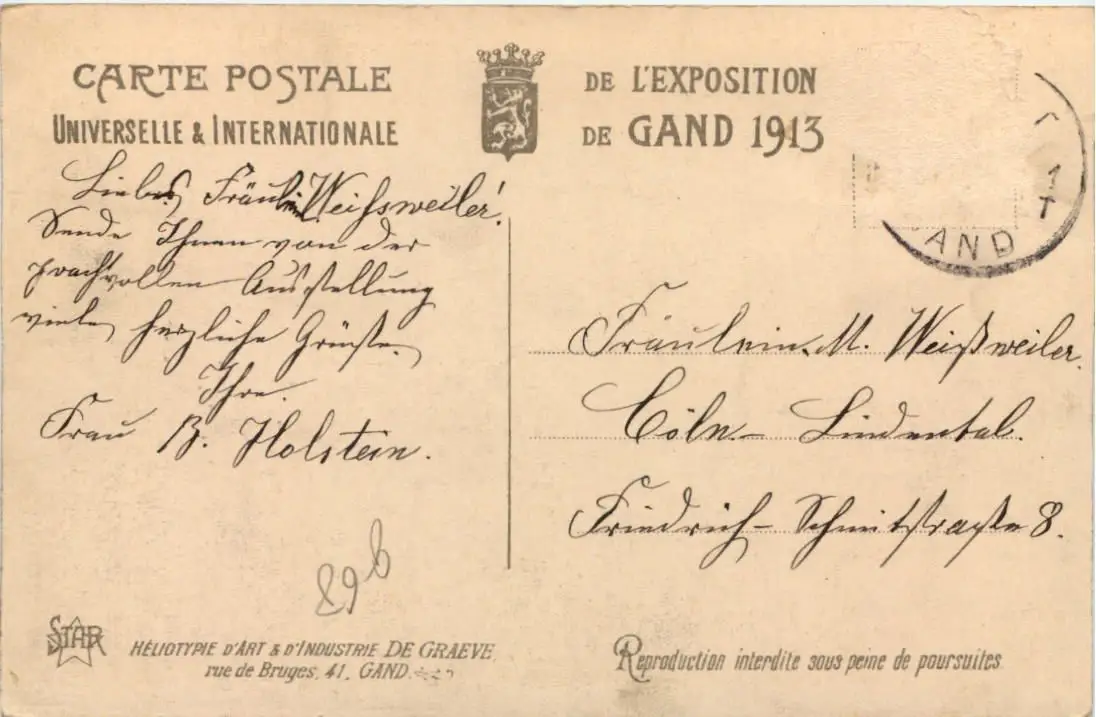 CARTE POSTALE
UNIVERSELLE & INTERNATIONALE
DE L'EXPOSITION
DE GAND 1913
AND
1
T
Liebes Fräulein Weissweiler!
Sende Ihnen von der
prachtvollen Ausstellung
viele herzliche Grüsse.
Ihre
Frau B. Holstein.
Fräulein M. Weißweiler
Cöln - Lindental.
Friedrich - Schmitstrasse 8.
89b
STAR
HÉLIOTYPIE D'ART & D'INDUSTRIE DE GRAEVE
rue de Bruges, 41, GAND
Reproduction interdite sous peine de poursuites